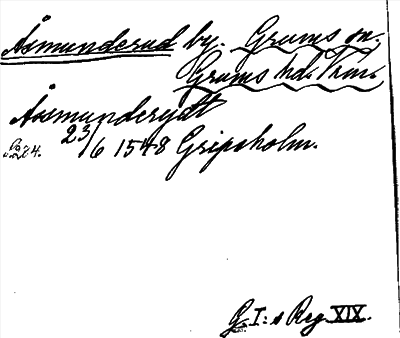 Åsmunderud by. Grums sn.
Grums hd. Vrml.
Åssmunderydt
23/6 1548 Gripsholm.
G. I:s Reg. XIX.